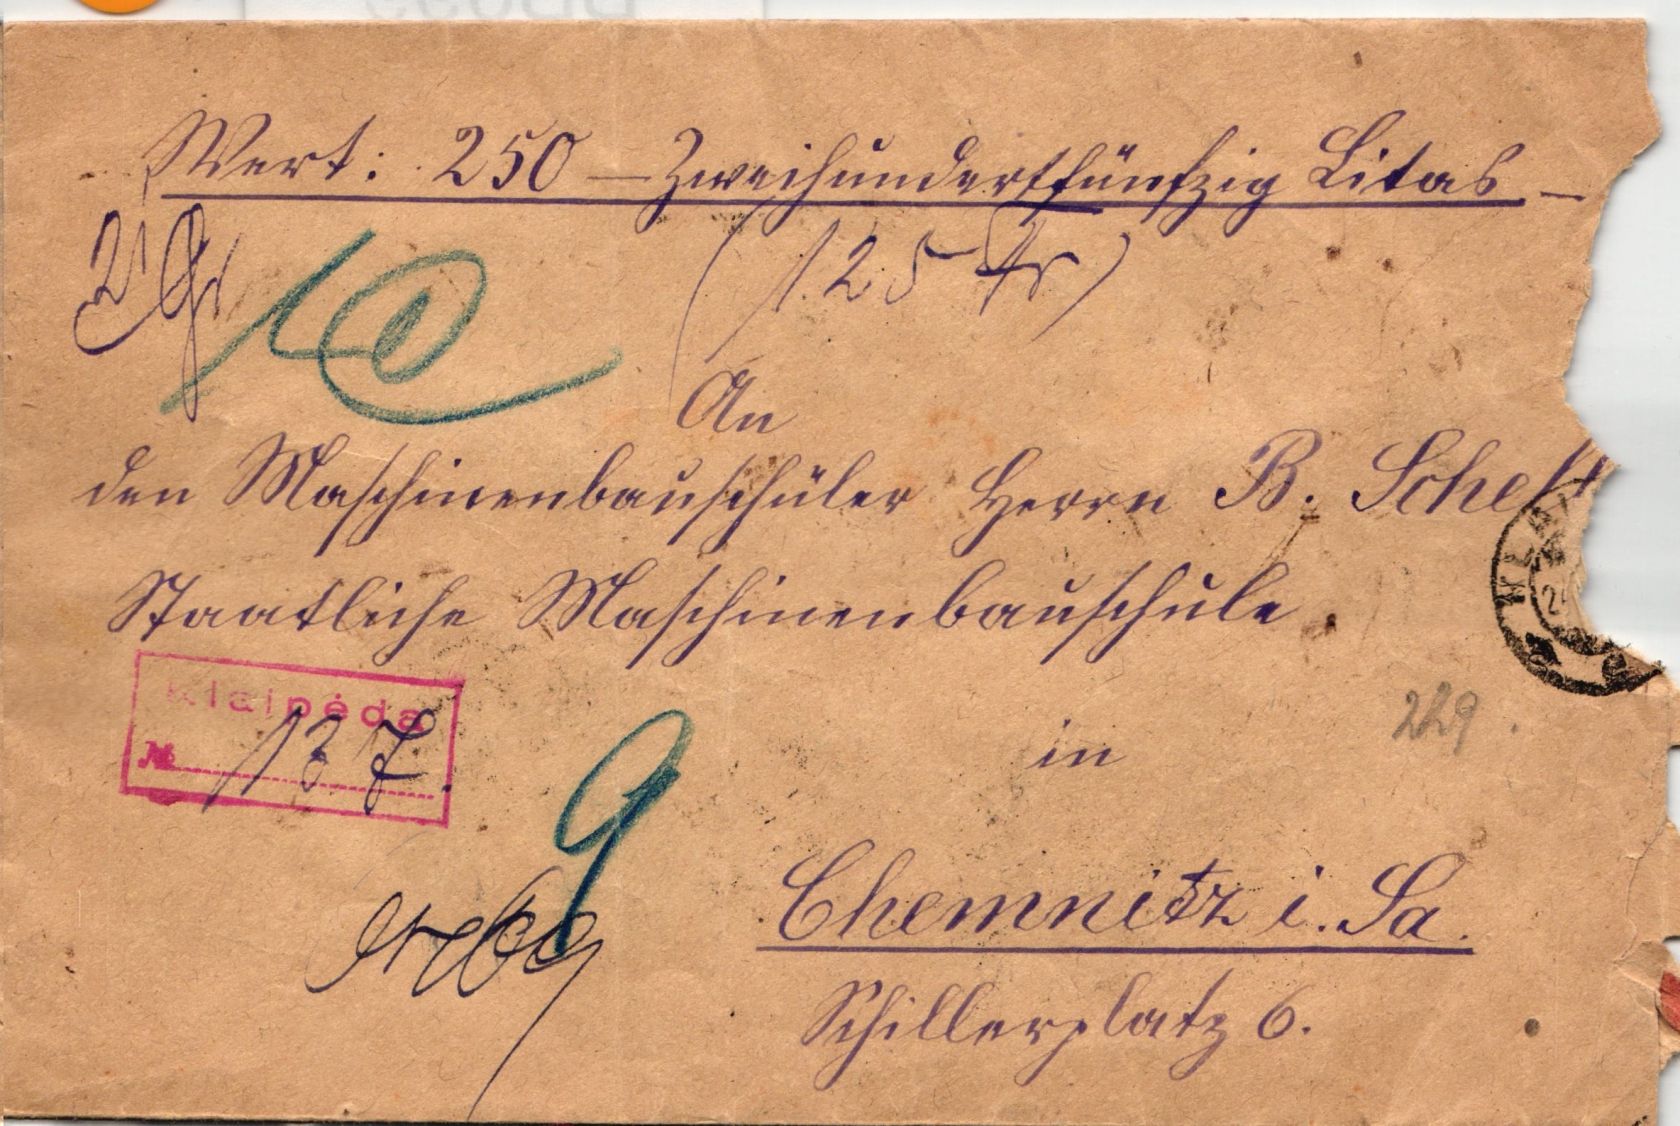 Wert: 250 — Zweihundertfünfzig Litas —
21 Gr
10
(125 Fr)
An
den Maschinenbauschüler Herrn B.
Staatliche Maschinenbauschule
Klaipėda
№ 137
in
229
9
Chemnitz i. Sa.
Schillerplatz 6.